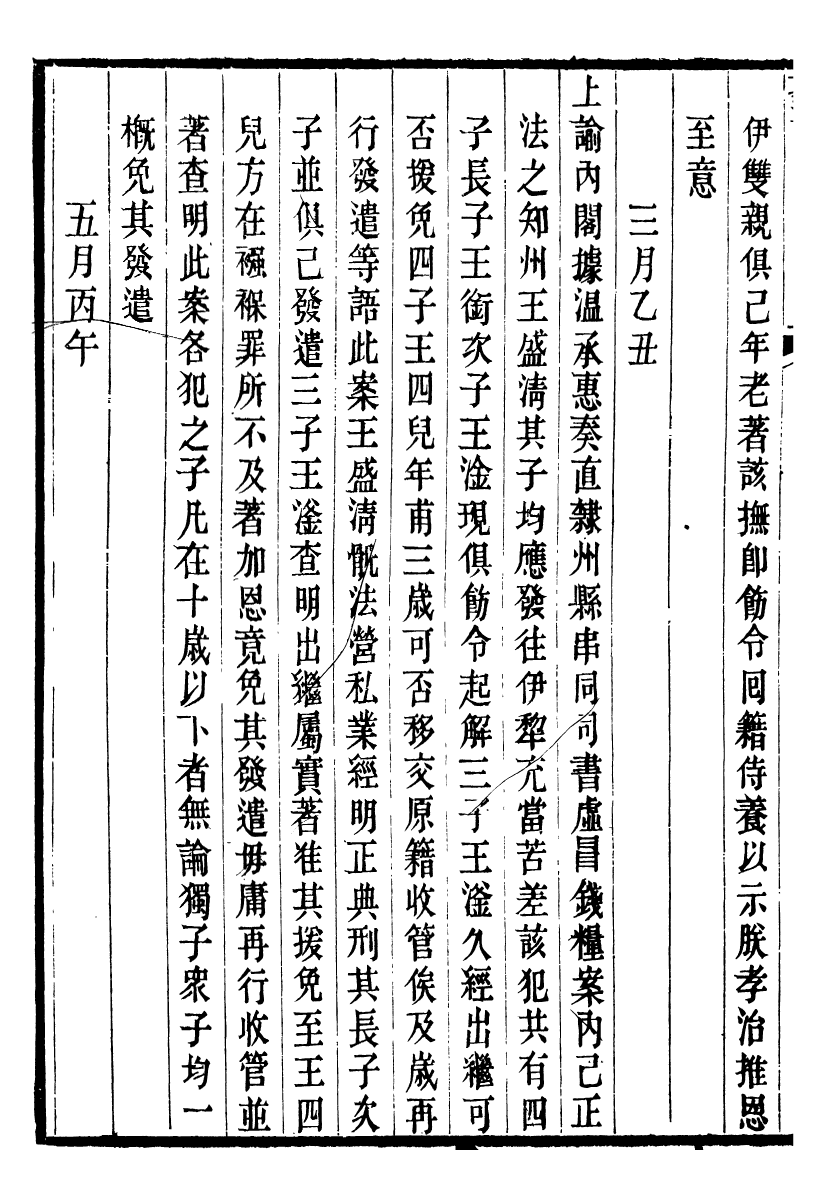 伊雙親俱已年老著該撫卽飭令囘籍侍養以示朕孝治推恩
至意
三月乙丑
上諭內閣據温承惠奏直隸州縣串同司書虛冒錢糧案內已正
法之知州王盛淸其子均應發往伊犂充當苦差該犯共有四
子長子王銜次子王淦現俱飭令起解三子王滏久經出繼可
否援免四子王四兒年甫三歲可否移交原籍收管俟及歲再
行發遣等語此案王盛淸骩法營私業經明正典刑其長子次
子並俱已發遣三子王滏查明出繼屬實著准其援免至王四
兒方在襁褓罪所不及著加恩竟免其發遣毋庸再行收管並
著查明此案各犯之子凡在十歲以下者無論獨子眾子均一
槪免其發遣
五月丙午